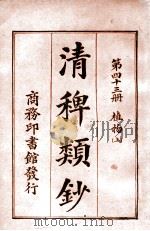 第四十三册 植物
清稗類鈔
商務印書館發行